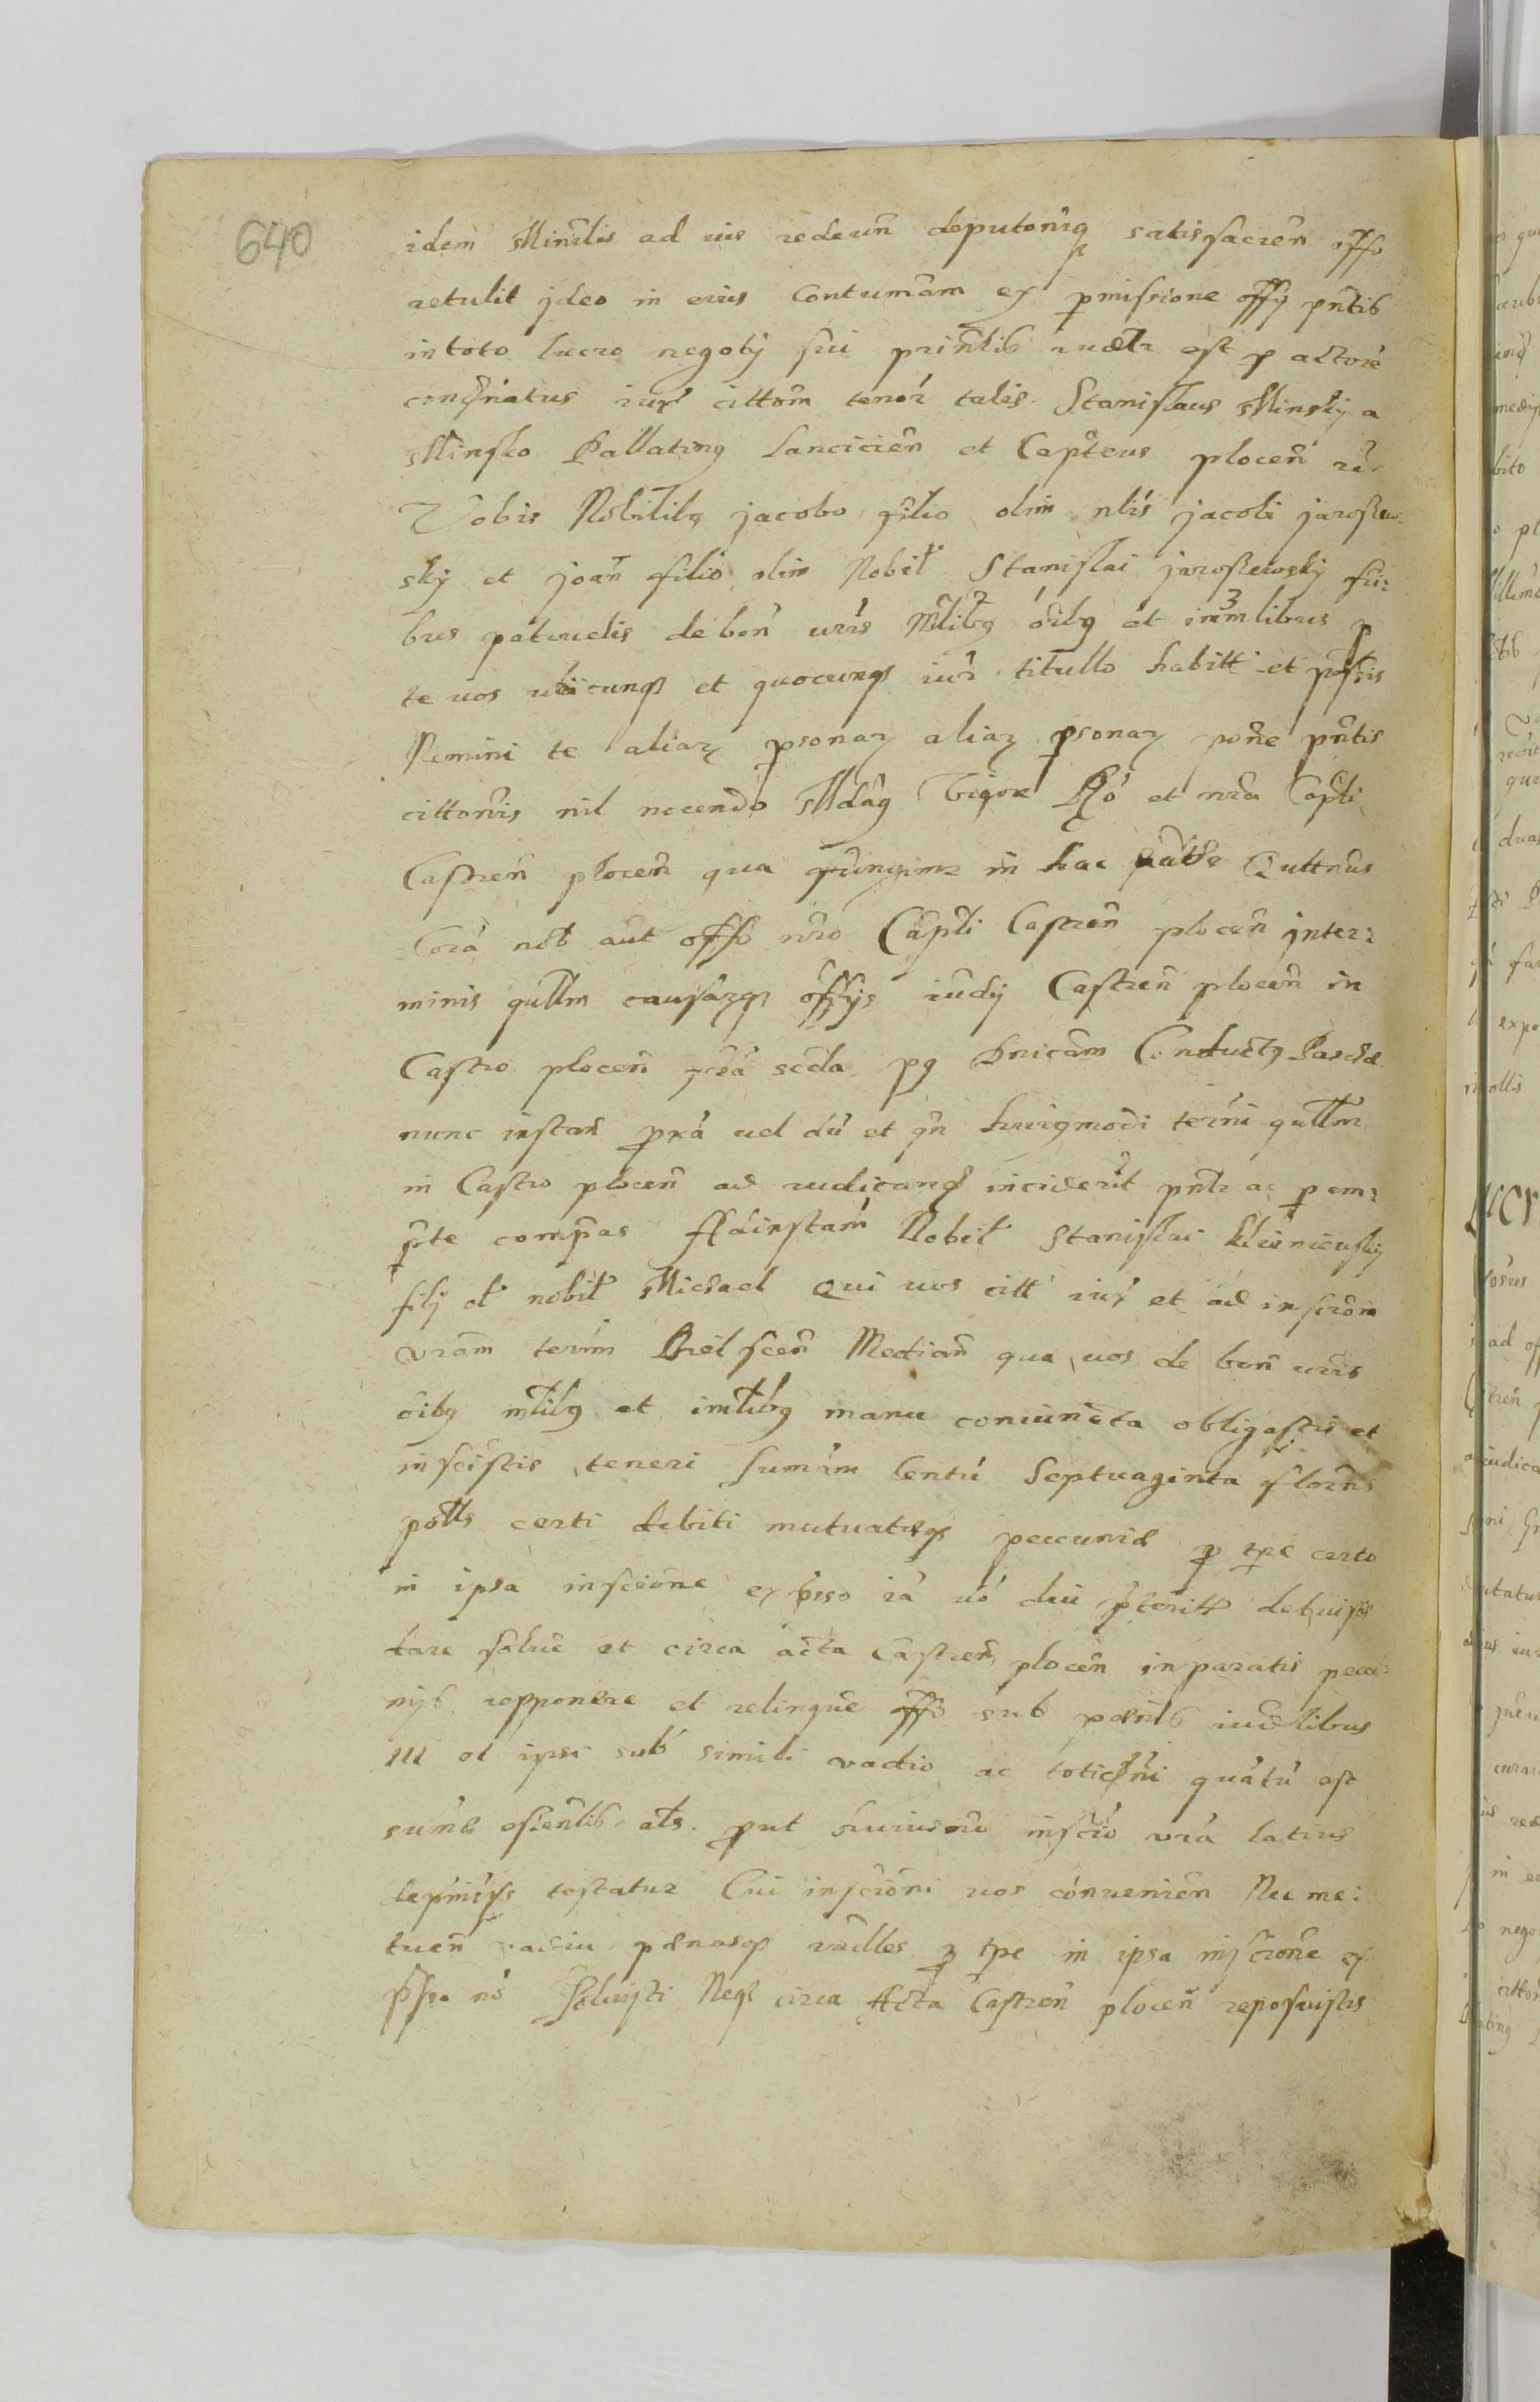 640
idem Minrlis ad ius redeun deputonīq satisfacien offo
retulit jdeo in eius Contumam ex pmissione offij pntis
in toto lucro negotij sui prinlis iudtr est p actore
condnatus iurᷓ cittom tenor talis Stanislaus Minsky a
Minsko Pallatinq Lancicien et Capteus plocen
Vobis Nobilibq jacobo filio olim nlis jacobi jaroszew-
sky et joan filio olim Nobil Stanislai jaroszewsky fri-
bus patruelis de bon vris Mlibq oibq et immlibus p
te vos vbicunqz et quocunqz iur titullo habitt et possis
Nemini te aliaz psonaz aliaz psonaz pone pntis
cittonis nil nocendo Mdaq Vigore Rgo et nra Capti
Castren plocen qua fungimr in hac parte Quttnus
Cora nob aut offo nro Capti Castren plocen jnter-
minis qullm causazqz offijs iudij Castren plocen in
Castro plocen feria scda pq Dnicam Conductq Pasche
nunc instan pxa vel du et qn huiqmodi termi qullm
in Castro plocen ad iudicand inciderit pntr ac pem-
pte compeas Adinstam Nobil Stanislai Kliniewsky
filij ol nobil Michael Qui vos citt iurᷓ et ad inscrom
vram termi Bielscen Median qua vos de bon vris
oibq mlibq et imlibq manu coniuncta obligastis et
inscristis teneri Sumam Centu Septuaginta florns
polls certi debiti mutuateqz peccunie p tpe certo
in ipsa inscrione expsso ia vo diu pteritt debuistis
dare solue et circa acta Castren plocen in paratis peccu-
nijs repponere et relinque offo sub penis iudlibus
III et ipsi sub simili vadio ac toticni quatu est
sume oscientlis als. put huiusmo inscrio vra latius
depmissis testatur Cui inscrioni vos convenien Nec me-
tuen vadiu penasqz iudles p tpe in ipsa inscrione ex
psso no Soluisti Neqz circa Acta Castren plocen reposuistis